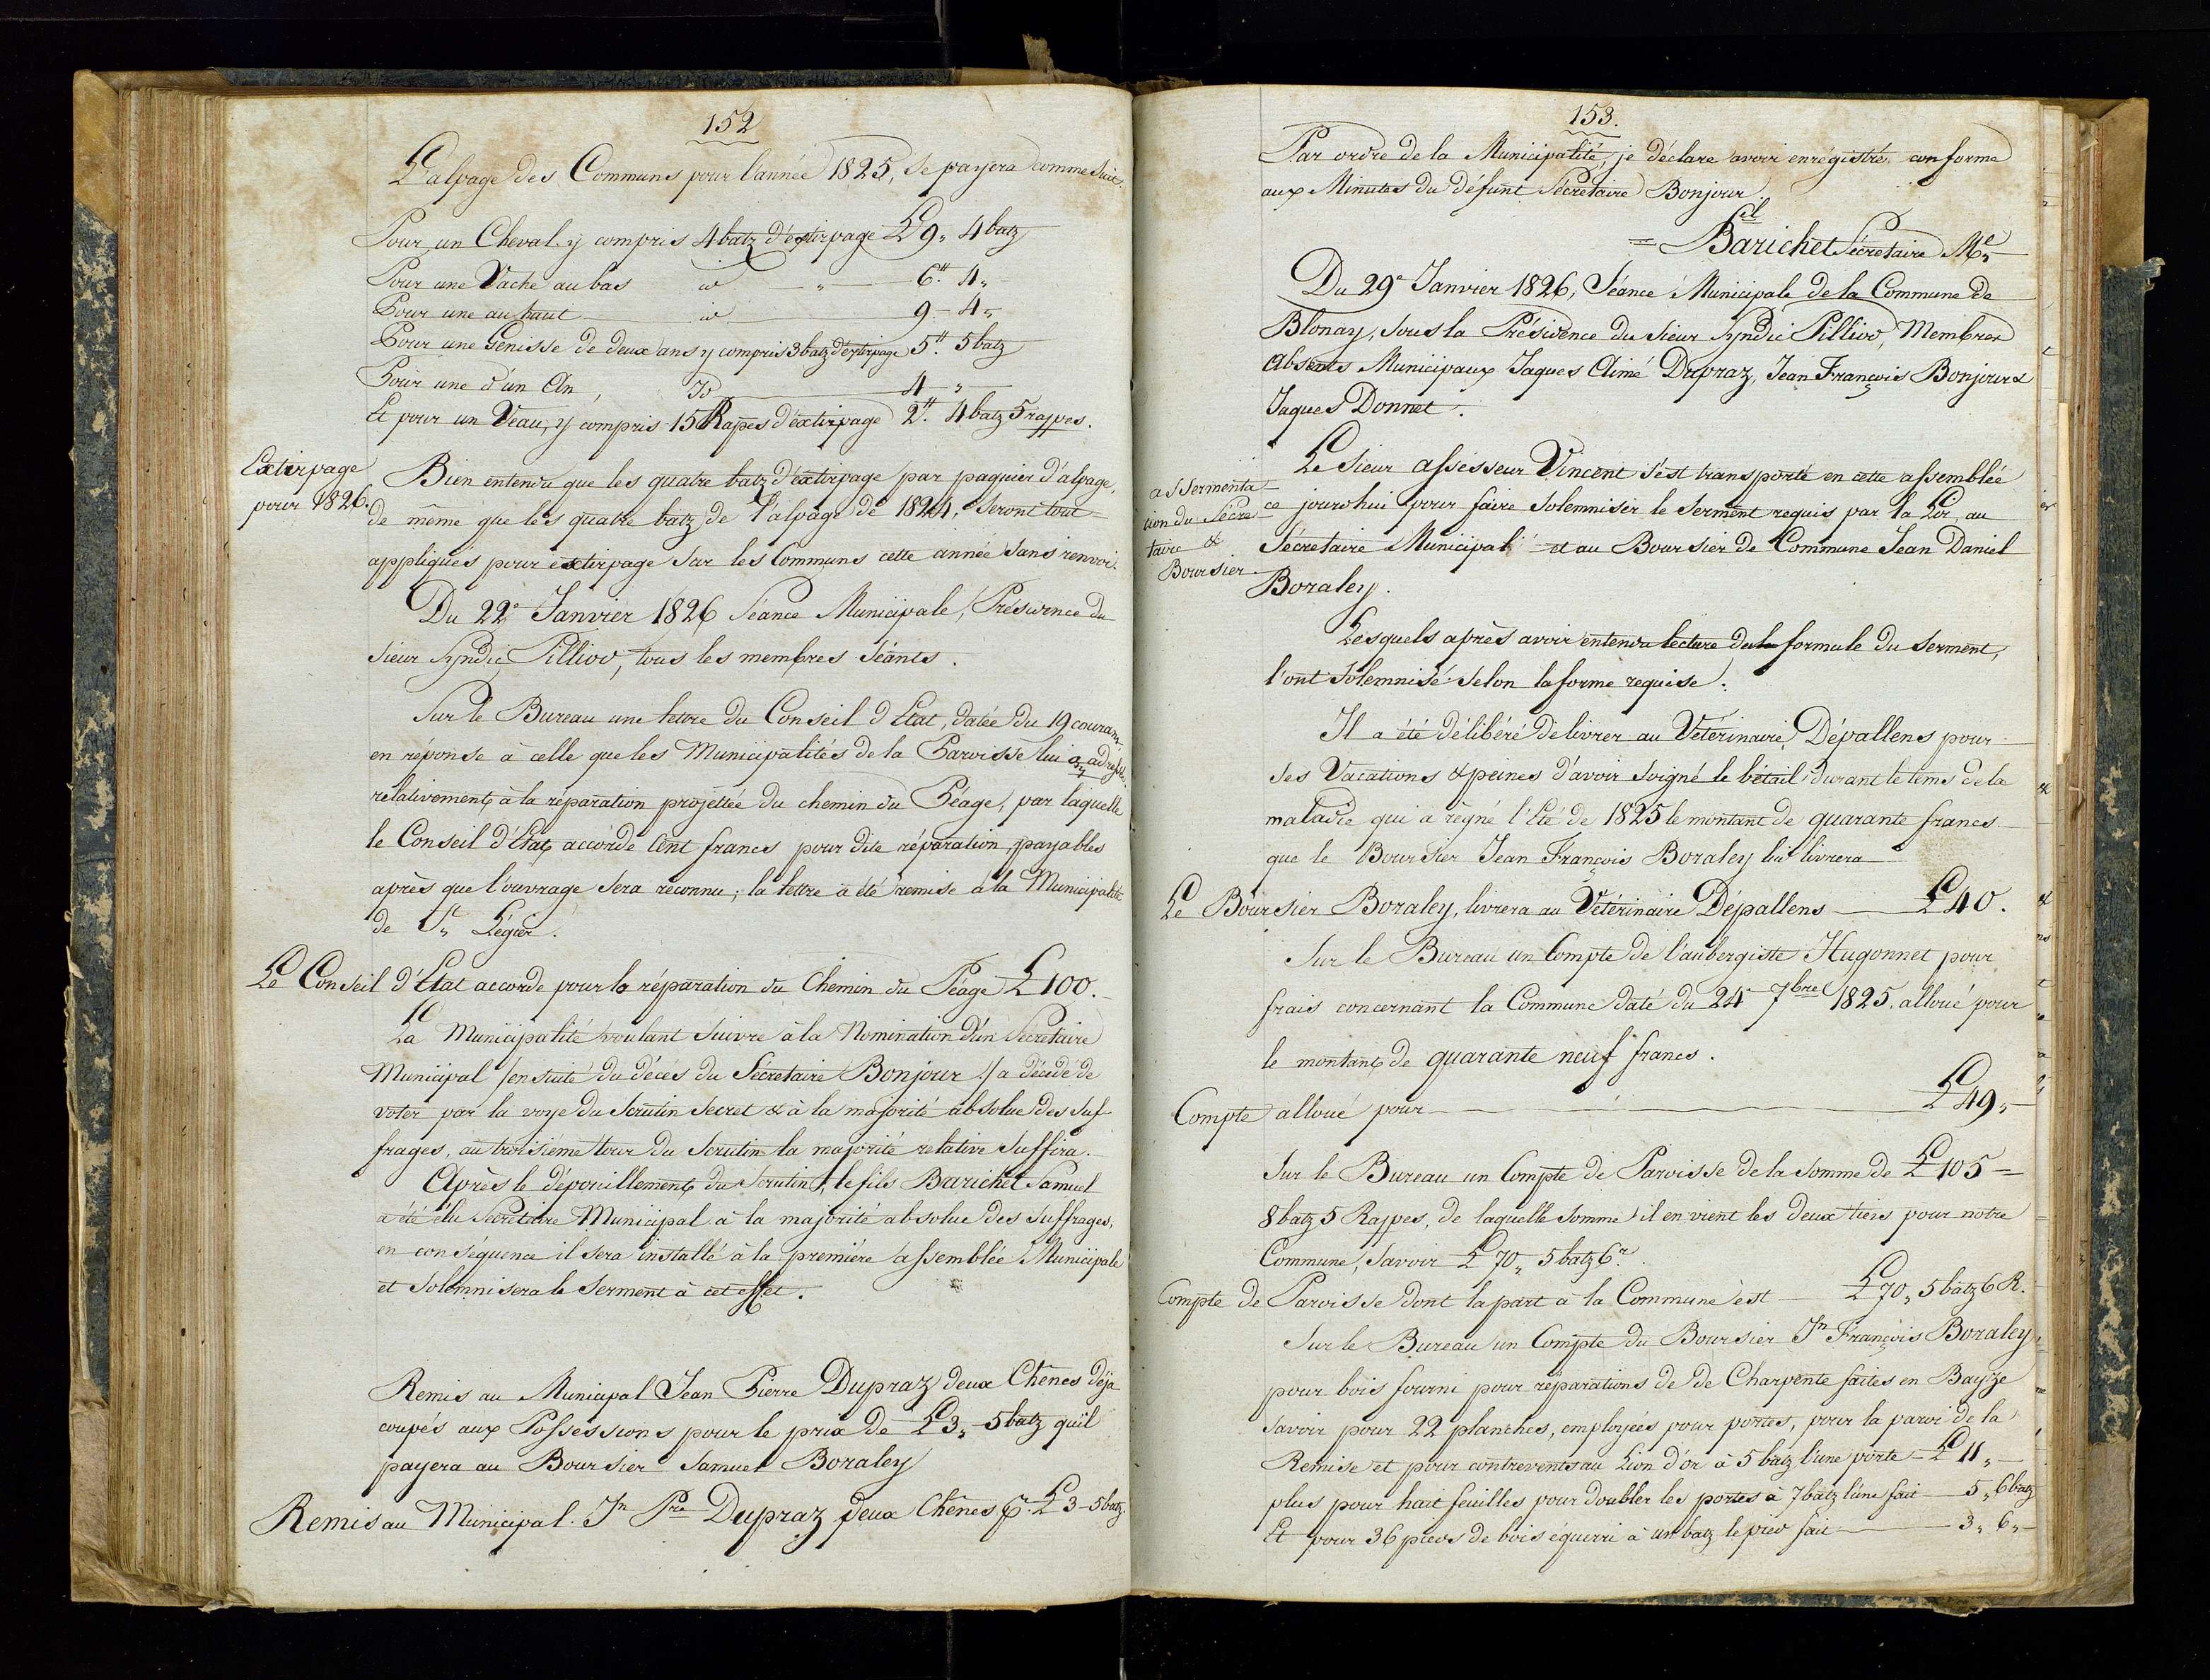 152
L'alpage des Communs pour l'année 1825, se payera comme suit.
Pour un Cheval y compris 4 batz d'extirpage L 9„ 4 batz
Pour une Vache au bas id „ 6.tt 4„
Pour une au haut id 9 - 4„
Pour une Genisse de deux ans y compris 3 batz d'extirpage 5.tt 5 batz
Pour une d'un An, Id 4 - „
Et pour un Veau, y compris 15 Rapes d'éxtirpage 2.tt 4 batz 5 rappes.
Extirpage
pour 1826.
Bien entendu que les quatre batz d'éxtirpage par paquier d'alpage,
de même que les quatre batz de l'alpage de 1824, seront tout
appliqués pour éxtirpage sur les Communs cette année sans renvoi.
Du 22e Janvier 1826 Séance Municipale, Présidence du
sieur Syndic Pilliod, tous les membres séants.
Sur le Bureau une lettre du Conseil d'Etat, datée du 19 courant,
en réponse à celle que les Municipalités de la Paroisse lui ont adressé,
relativement à la réparation projettée du chemin du Péage, par laquelle
le Conseil d'Etat accorde Cent francs pour dite réparation, payables
après que l'ouvrage sera reconnu; la lettre a été remise à la Municipalité
de St Légier.
Le Conseil d'Etat accorde pour la réparation du Chemin du Péage L 100.
La Municipalité voulant suivre à la Nomination d'un Secrétaire
Municipal /ensuite du décés du Sécretaire Bonjour / a décidé de
voter par la voye du Scrutin secret & à la majorité absolue des suf-
frages, au troisième tour du Scrutin la majorité relative suffira.
Après le dépouillement du Scrutin, le fils Barichet Samuel
a été élu Secrétaire Municipal à la majorité absolue des suffrages,
en conséquence il sera installé à la première assemblée Municipale
et solemnisera le serment à cet effet.
Remis au Municipal Jean Pierre Dupraz deux Chênes déja
coupés aux Possessions pour le prix de L 3„ 5 batz qu'il
payera au Boursier Samuel Boraley
Remis au Municipal Jn Pre Dupraz deux Chênes pr L 3 - 5 batz.
153.
Par ordre de la Municipalité, je déclare avoir enrégistré conforme
aux Minutes du défunt Sécretaire Bonjour.
= Sl Barichet Sécretaire Ml
Du 29e Janvier 1826, Séance Municipale de la Commune de
Blonay, sous la Présidence du Sieur Syndic Pilliod, Membres
Absents Municipaux Jaques Aimé Dupraz, Jean François Bonjour &
Jaques Donnet.
assermenta
tion du Sécre
taire &
Boursier
Le Sieur assesseur Vincent s'est transporté en cette assemblée
ce jourdhui pour faire solemniser le serment requis par la Loi au
Sécretaire Municipal et au Boursier de Commune Jean Daniel
Boraley.
Lesquels après avoir entendu lecture de la formule du serment,
l'ont solemnisé selon la forme requise.
Il a été délibéré de livrer au Vétérinaire Dépallens pour
ses Vacations & peines d'avoir soigné le bétail durant le tems de la
maladie qui a régné l'Eté de 1825 le montant de quarante francs
que le Boursier Jean François Boraley lui livrera
Le Boursier Boraley, livrera au Vétérinaire Dépallens L 40.
Sur le Bureau un Compte de l'aubergiste Hugonnet pour
frais concernant la Commune daté du 24 7bre 1825. alloué pour
le montant de quarante neuf francs.
Compte alloué pour L 49„
Sur le Bureau un Compte de Paroisse de la somme de L 105 =
8 batz 5 Rappes, de laquelle somme il en vient les deux tiers pour notre
Commune, savoir L 70„ 5 batz 6 r.
Compte de Paroisse dont la part à la Commune est L 70„ 5 batz 6 R.
Sur le Bureau un Compte du Boursier Jn François Boraley
pour bois fourni pour réparations de de Charpente faites en Bayze
savoir pour 22 planches, employées pour portes, pour la paroi de la
Remise et pour contrevents au Lion d'or à 5 batz l'une porte L 11„
plus pour huit feuilles pour doubler les portes à 7 batz l'une fait 5„ 6 batz
Et pour 36 pieds de bois équarri à un batz le pied fait 3„ 6„